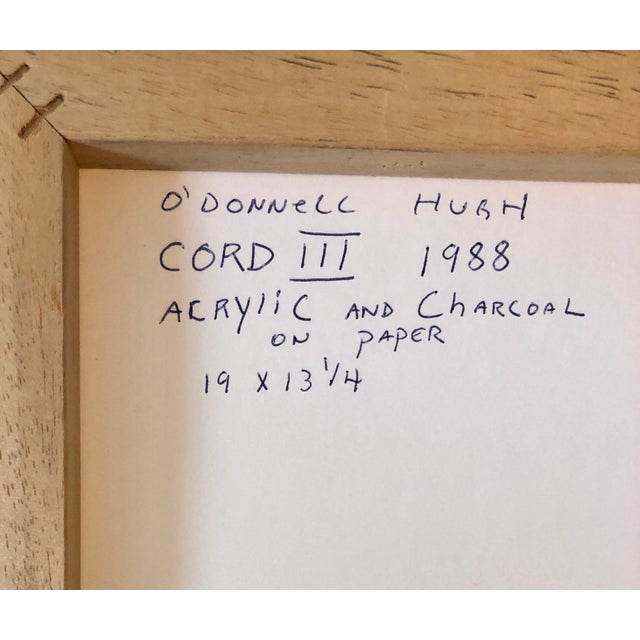 O'DONNELL HUGH
CORD III 1988
ACRYLIC AND CHARCOAL
ON PAPER
19 X 13 1/4